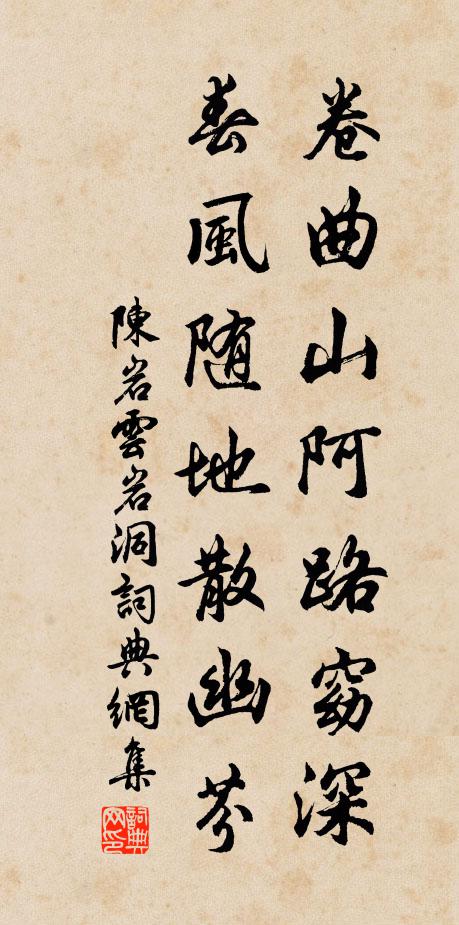 卷曲山阿路窈深
春風随地散幽芬
陳岩雲岩洞詞典網集
詞典網印